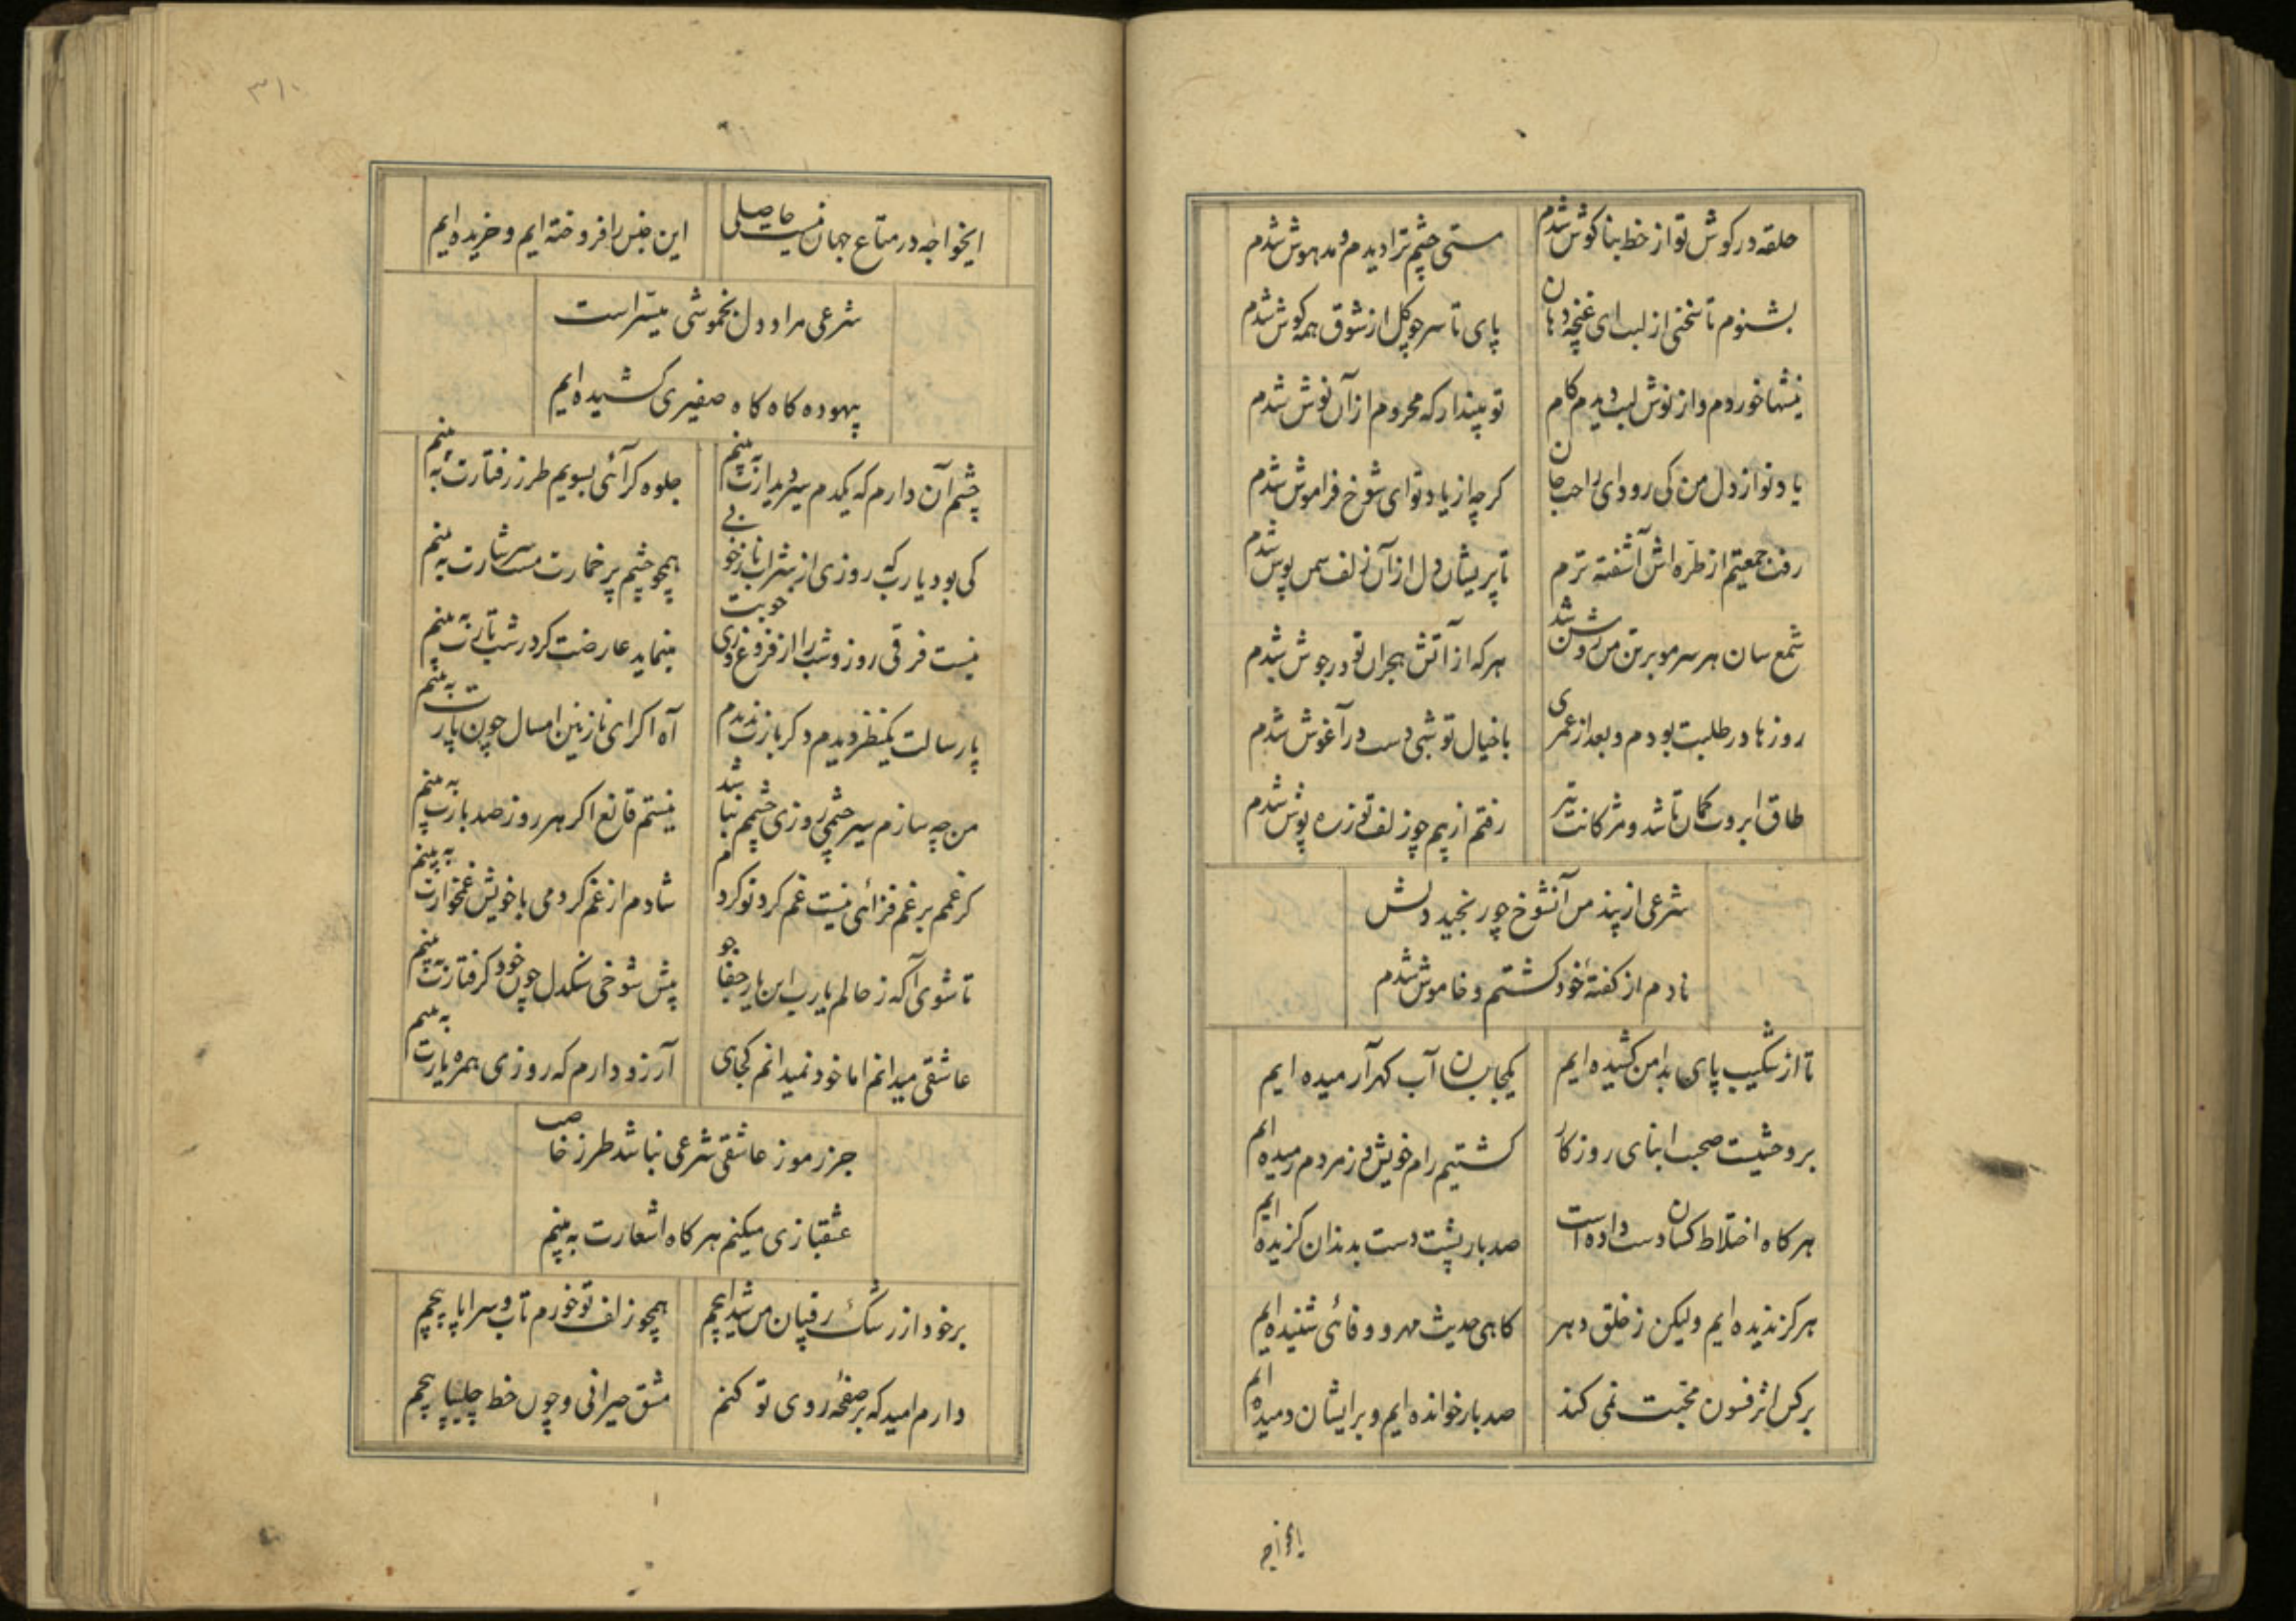 حلقه در کوش تو از خط بنا کوش شدم مستی چشم ترا دیدم و مدهوش شدم
بشنوم تا سخنی از لبت ای غنچه دهان پای تا سر چو کل از شوق همه کوش شدم
نیشها خوردم و از نوش لبت دیدم کام تو مپندار که محروم از آن نوش شدم
یاد تو از دل من کی رود ای راحت جان کرچه از یاد تو ای شوخ فراموش شدم
رفت جمعیتم از طرّه اش آشفته ترم تا پریشان دل از آن زلف سمن پوش شدم
شمع سان هر سر مو بر تن من روشن شد هر که از آتش هجران تو در جوش شدم
روزها در طلبت بودم و بعد از عمری با خیال تو شبی دست در آغوش شدم
طاق ابروت کمان تا شد و مژکانت تیر رفتم از بیم چو زلف تو زره پوش شدم
شرعی از پند من آنشوخ چو رنجید دلش
نادم از کفتهٔ خود کشتم و خاموش شدم
تا از شکیب پای بدامن کشیده ایم یکجا بسان آب کهر آرمیده ایم
بر وحشیت صحبت ابنای روزکار کشتیم رام خویش و ز مردم رمیده ایم
هر کاه اختلاط کسان دست داده است صد بار پشت دست بدندان کزیده ایم
هرکز ندیده ایم ولیکن ز خلق دهر کاهی حدیث مهر و وفائی شنیده ایم
بر کس اثر فسون محبّت نمی کند صد بار خوانده ایم و بر ایشان دمیده ایم
ایخواجه
۳۱۰
ایخواجه در متاع جهان نیست حاصلی این جنس را فروخته ایم و خریده ایم
شرعی مراد دل بخموشی میسّر است
بیهوده کاه کاه صفیری کشیده ایم
چشم آن دارم که یکدم سیر دیدارت به بینم جلوه کر آئی بسویم طرز رفتارت به بینم
کی بود یارب که روزی از شراب ناز خوبی همچو چشم پر خمارت مست سرشارت به بینم
نیست فرقی روز و شب را از فروغ روی خوبت مینماید عارضت کر در شب تارت به بینم
پار سالت یکنظر دیدم دکر بازت ندیدم آه اکر ای نازنین امسال چون پارت به بینم
من چه سازم سیر چشمی روزی چشمم نباشد نیستم قانع اکر هر روز صد بارت به بینم
کر غمم بر غم فزائی نیست غم کرد تو کردم شادم از غم کر دمی با خویش غمخوارت به بینم
تا شوی آکه ز حالم یارب این یار جفا جو پیش شوخی سنکدل چون خود کرفتارت به بینم
عاشقی میدانم اما خود نمیدانم کجایی آرزو دارم که روزی همره یارت به بینم
جز رموز عاشقی شرعی نباشد طرز خاصت
عشقبازی میکنم هر کاه اشعارت به بینم
بر خود از رشک رقیبان من شیدا پیچم همچو زلف تو خورم تاب و سراپا پیچم
دارم امید که بر صفحهٔ روی تو کنم مشق حیرانی و چون خط چلیپا پیچم